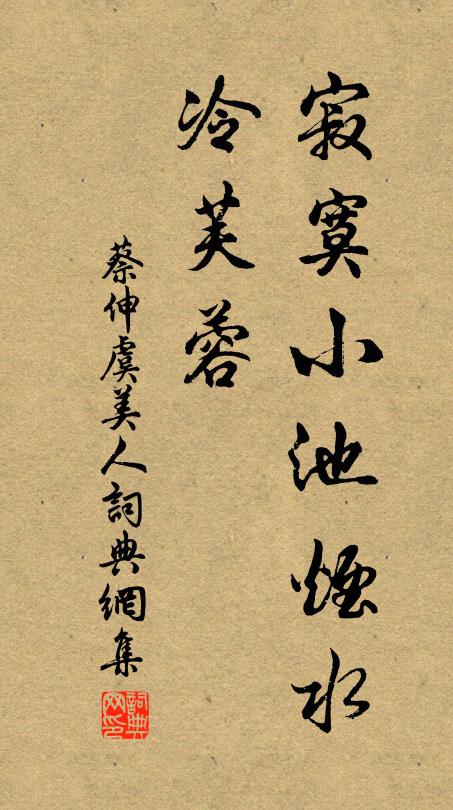 寂寞小池煙水
冷芙蓉
蔡伸虞美人詞典網集
詞典网印